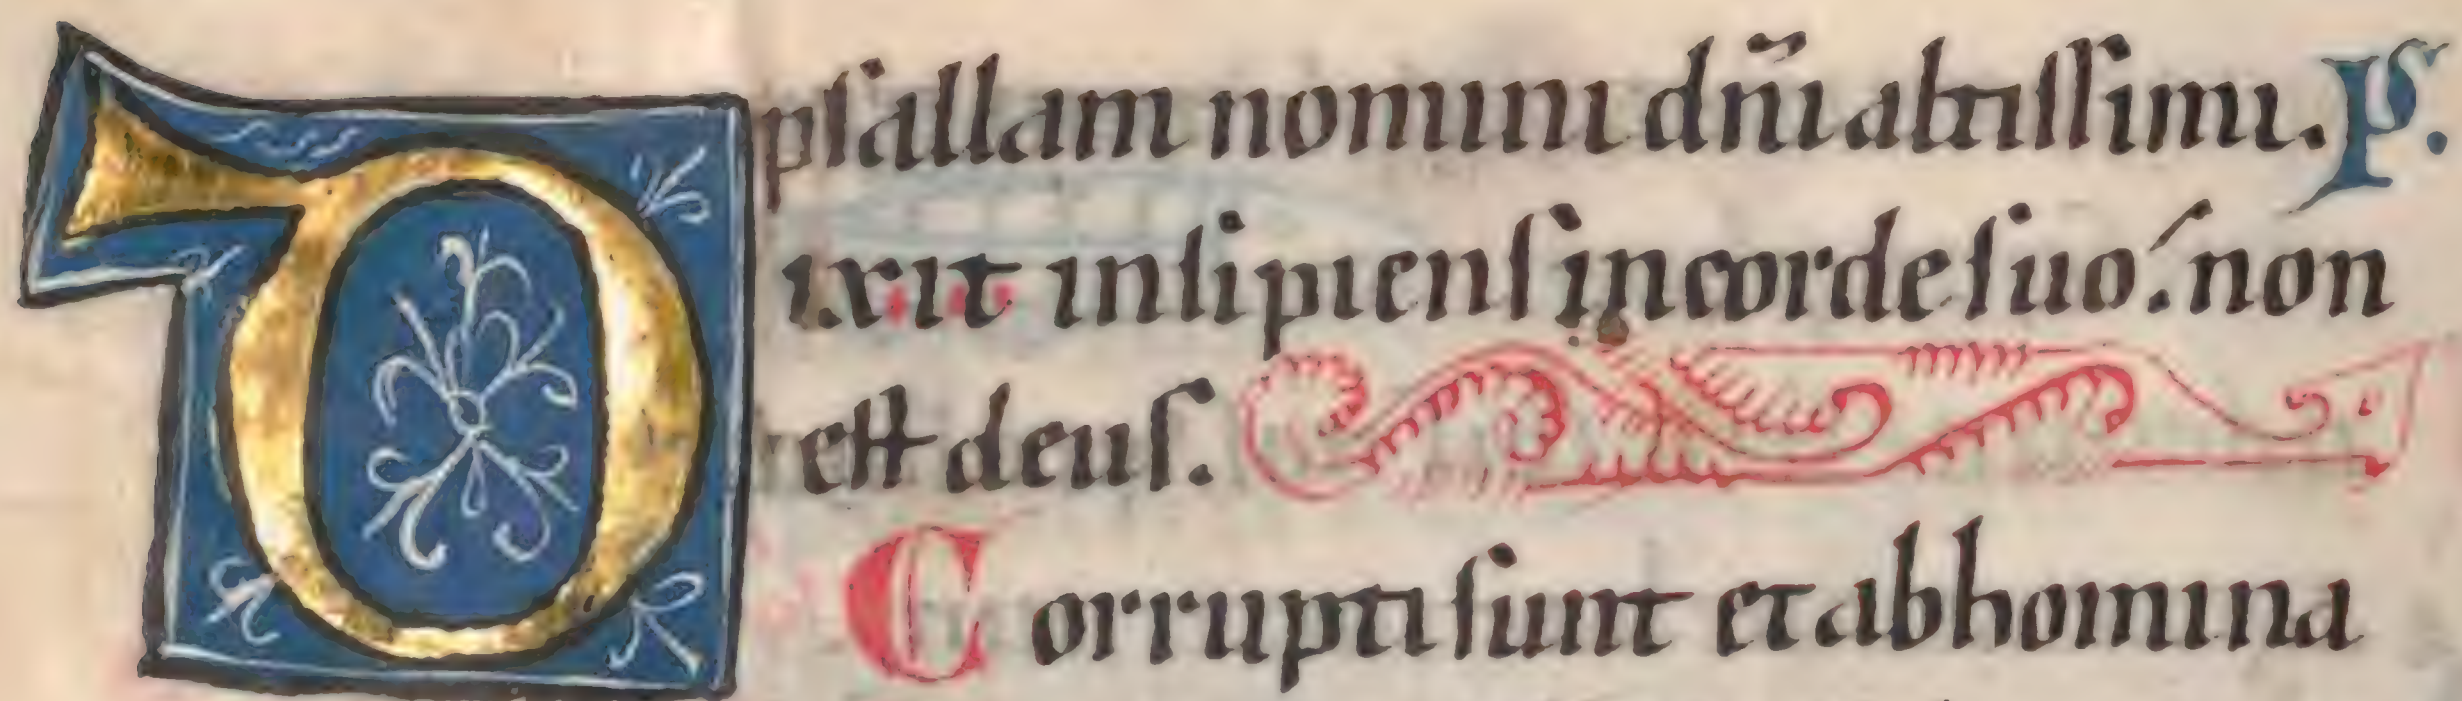 psallam nomini dñi altissimi. P̄s.
Dixit insipiens in corde suo: non
est deus.
Corrupti sunt et abhomina